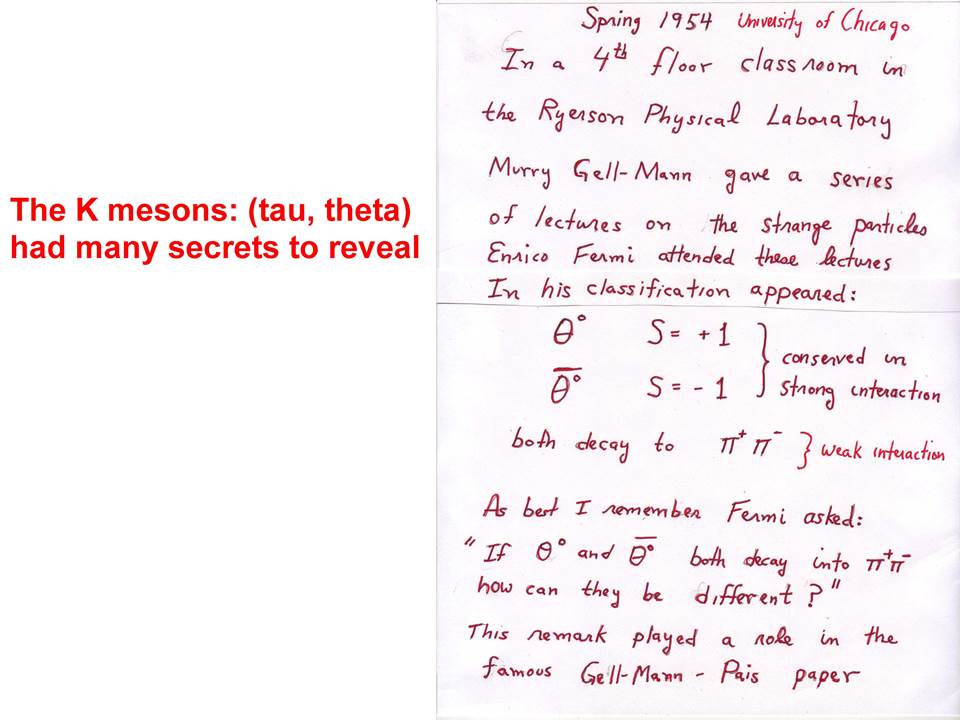 The K mesons: (tau, theta)
had many secrets to reveal
Spring 1954 University of Chicago
In a 4th floor classroom in
the Ryerson Physical Laboratory
Murry Gell-Mann gave a series
of lectures on the strange particles
Enrico Fermi attended these lectures
In his classification appeared:
θ° S = +1
θ̅° S = -1
} conserved in
strong interaction
both decay to π⁺π⁻ } weak interaction
As best I remember Fermi asked:
"If θ° and θ̅° both decay into π⁺π⁻
how can they be different?"
This remark played a role in the
famous Gell-Mann - Pais paper